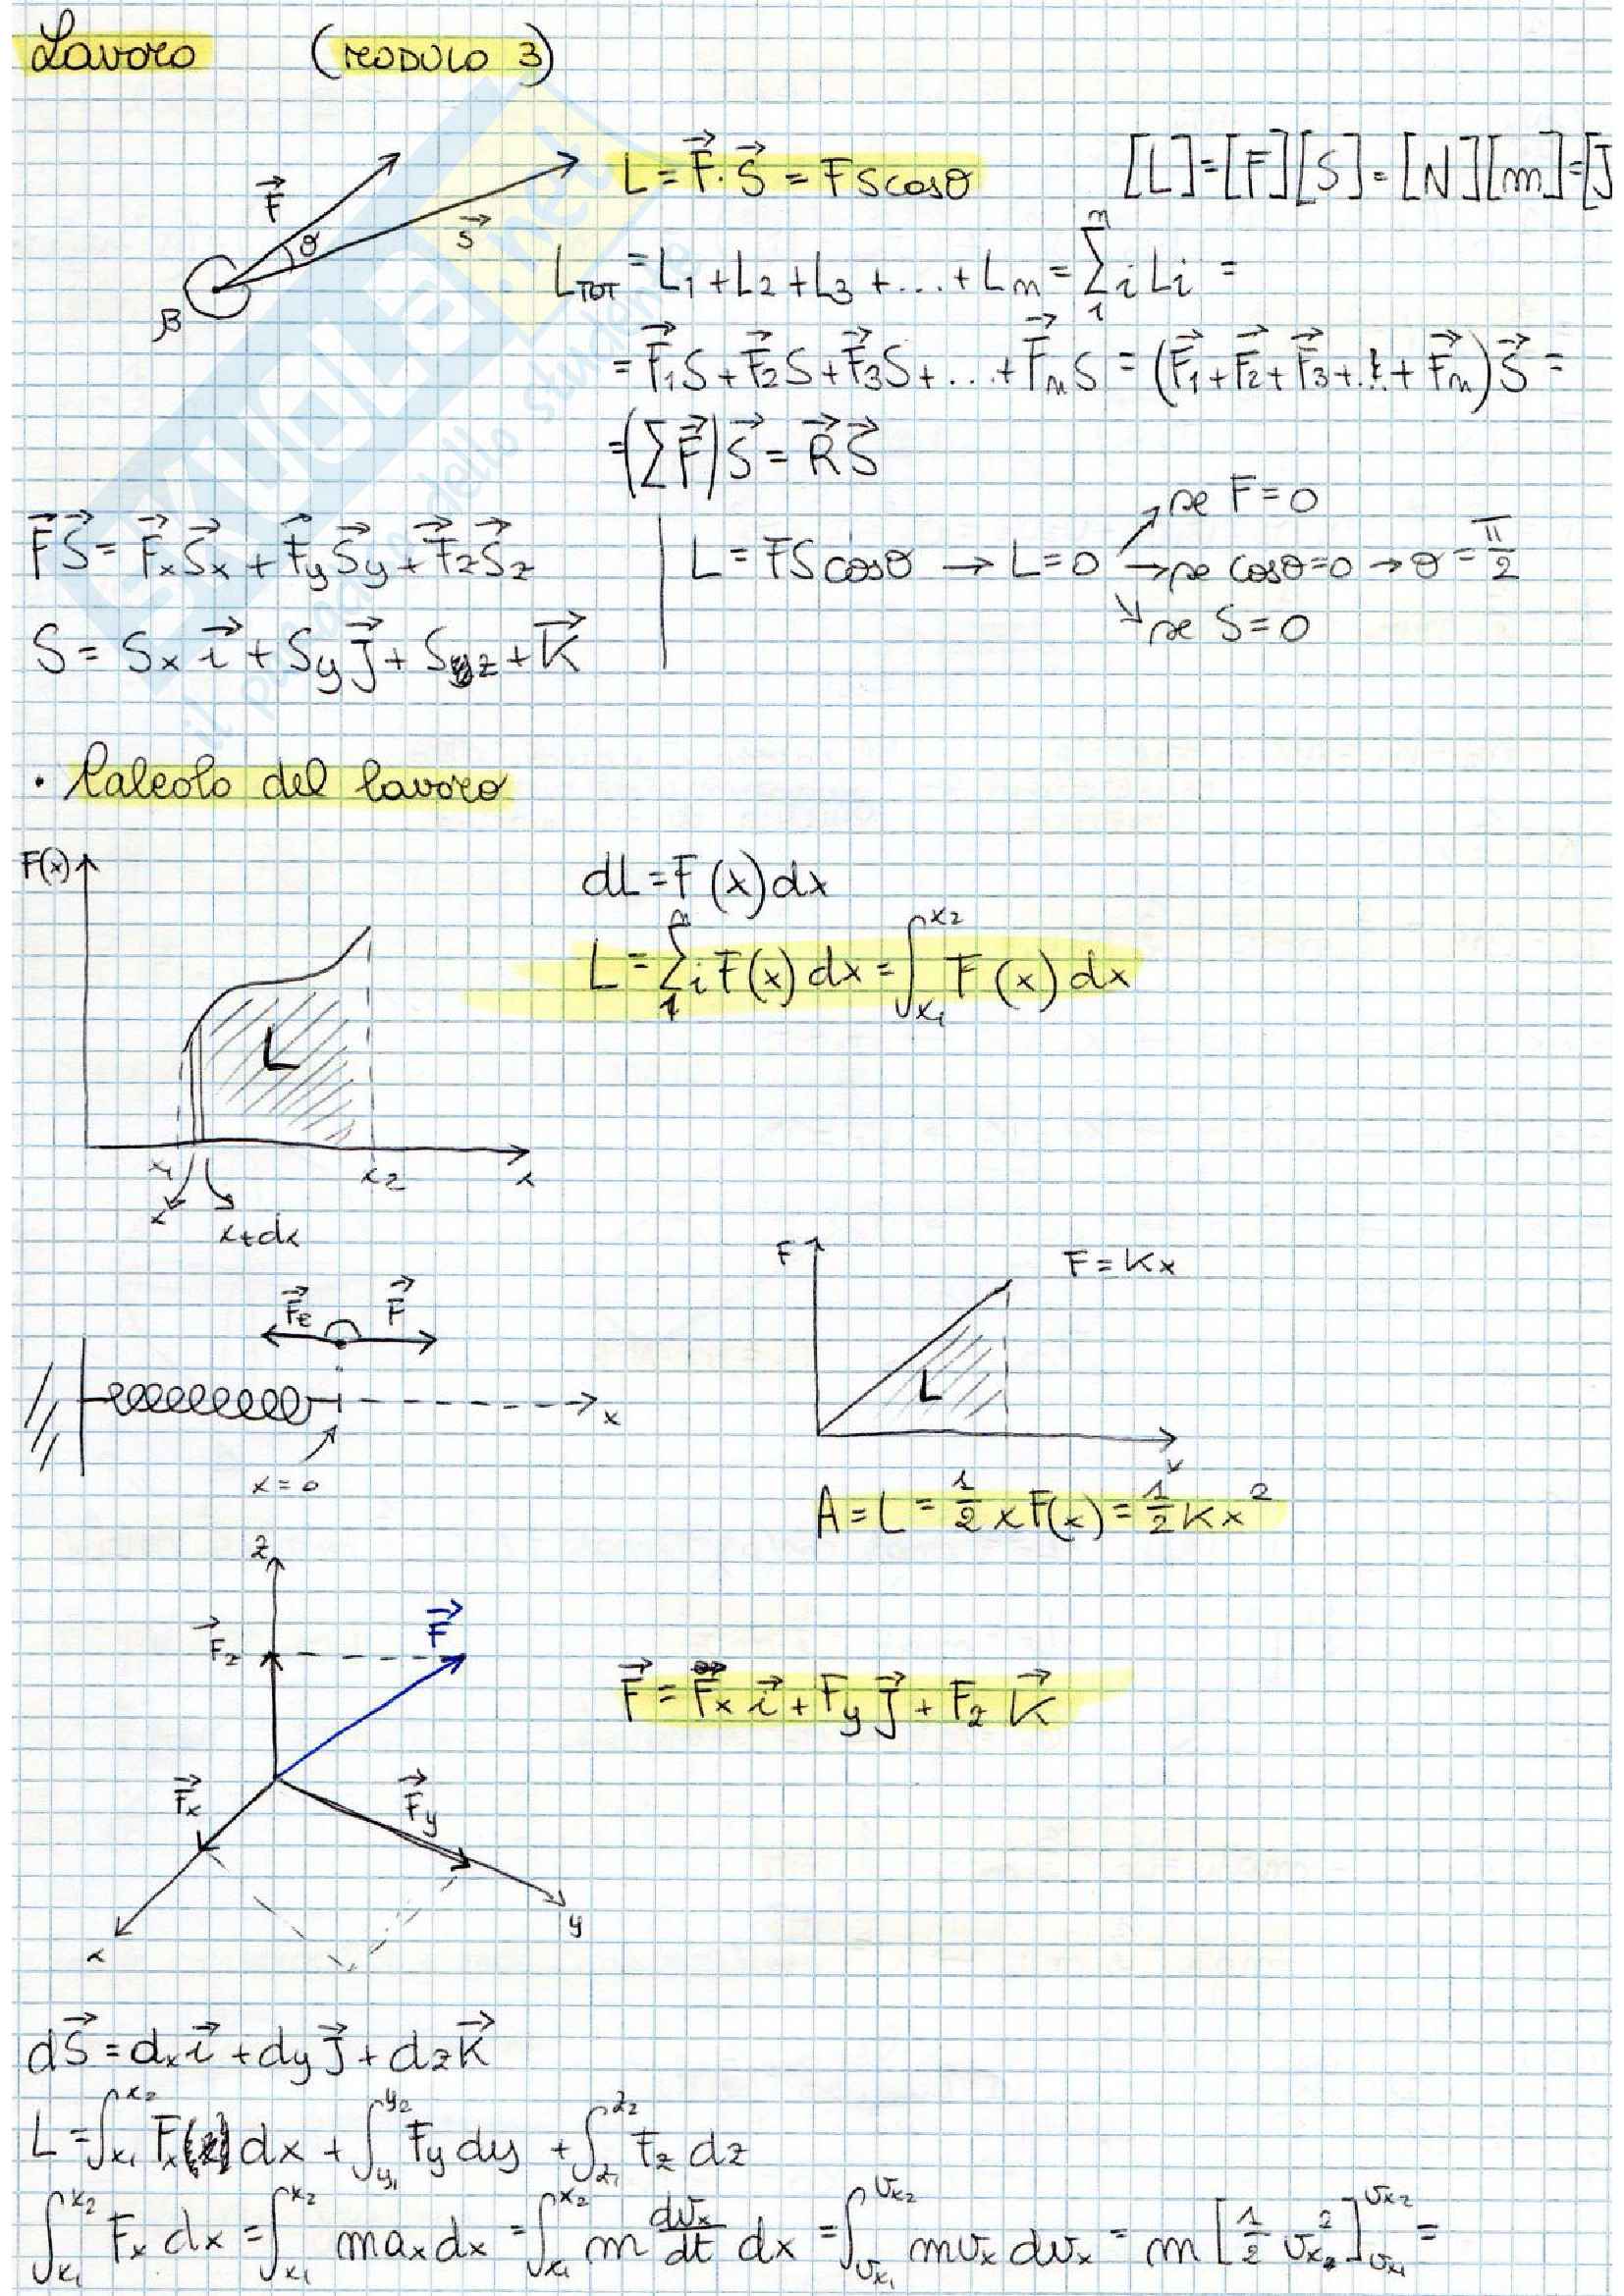 Lavoro (MODULO 3)
F⃗ θ S⃗ β
L = F⃗·S⃗ = FS cosθ
[L]=[F][S]=[N][m]=[J
L_TOT = L₁+L₂+L₃+...+Lₙ = Σ₁ⁿ i Li =
= F⃗₁S+F⃗₂S+F⃗₃S+...+F⃗ₙS = (F⃗₁+F⃗₂+F⃗₃+...+F⃗ₙ)S⃗ =
=(ΣF⃗)S⃗ = R⃗S⃗
F⃗S⃗ = F⃗xS⃗x + F⃗yS⃗y + F⃗zS⃗z
S = Sx i⃗ + Sy j⃗ + Sz + K⃗
L = FS cosθ → L=0
se F=0
→ se cosθ=0 → θ = π/2
se S=0
· Calcolo del lavoro
F(x)
L
x₁ x₂ x
x x+dx
dL = F(x)dx
L = Σ₁ⁿ i F(x) dx = ∫x₁^x₂ F(x) dx
F⃗e F⃗
x
x=0
F F=Kx
L
x
A = L = 1/2 x F(x) = 1/2 Kx²
z
F⃗z F⃗
F⃗x F⃗y
x y
F⃗ = Fx i⃗ + Fy j⃗ + Fz K⃗
dS⃗ = dx i⃗ + dy j⃗ + dz K⃗
L = ∫x₁^x₂ Fx dx + ∫y₁^y₂ Fy dy + ∫z₁^z₂ Fz dz
∫x₁^x₂ Fx dx = ∫x₁^x₂ max dx = ∫x₁^x₂ m dvx/dt dx = ∫vx₁^vx₂ mvx dvx = m [1/2 vx²]vx₁^vx₂ =
SKUOLA.net
il paradiso dello studente